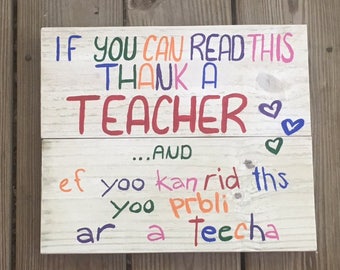 IF YOU CAN READ THIS
THANK A
TEACHER
...AND
ef yoo kan rid ths
yoo prbli
ar a teecha